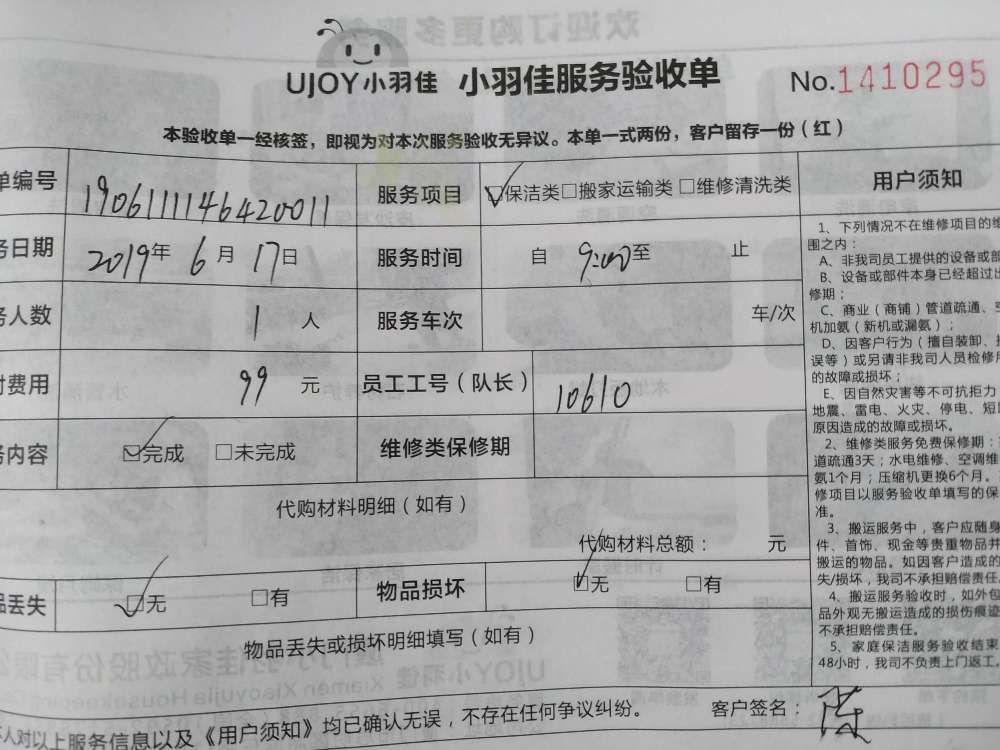 UJOY小羽佳 小羽佳服务验收单 No.1410295
本验收单一经核签，即视为对本次服务验收无异议。本单一式两份，客户留存一份（红）
单编号 1906111146420011 服务项目 ☑保洁类□搬家运输类□维修清洗类
务日期 2019年6月17日 服务时间 自 9:00至 止
务人数 1 人 服务车次 车/次
付费用 99 元 员工工号（队长） 10610
务内容 ☑完成 □未完成 维修类保修期
代购材料明细（如有）
代购材料总额： 元
品丢失 ☑无 □有 物品损坏 ☑无 □有
物品丢失或损坏明细填写（如有）
人对以上服务信息以及《用户须知》均已确认无误，不存在任何争议纠纷。 客户签名：
用户须知
1、下列情况不在维修项目的维
围之内：
A、非我司员工提供的设备或部
B、设备或部件本身已经超过出
修期；
C、商业（商铺）管道疏通、空
机加氨（新机或漏氨）；
D、因客户行为（擅自装卸、
误等）或另请非我司人员检修
的故障或损坏；
E、因自然灾害等不可抗拒力
地震、雷电、火灾、停电、短
原因造成的故障或损坏。
2、维修类服务免费保修期：
道疏通3天；水电维修、空调维
氨1个月；压缩机更换6个月。
修项目以服务验收单填写的保
准。
3、搬运服务中，客户应随身
件、首饰、现金等贵重物品并
搬运的物品。如因客户造成的
失/损坏，我司不承担赔偿责任
4、搬运服务验收时，如外包
品外观无搬运造成的损伤痕迹
不承担赔偿责任。
5、家庭保洁服务验收结束
48小时，我司不负责上门返工。